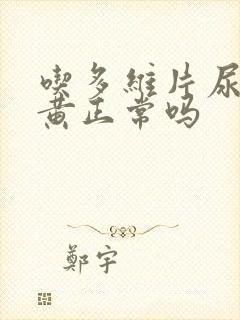 喫多維片尿
黄正常吗
鄭宇